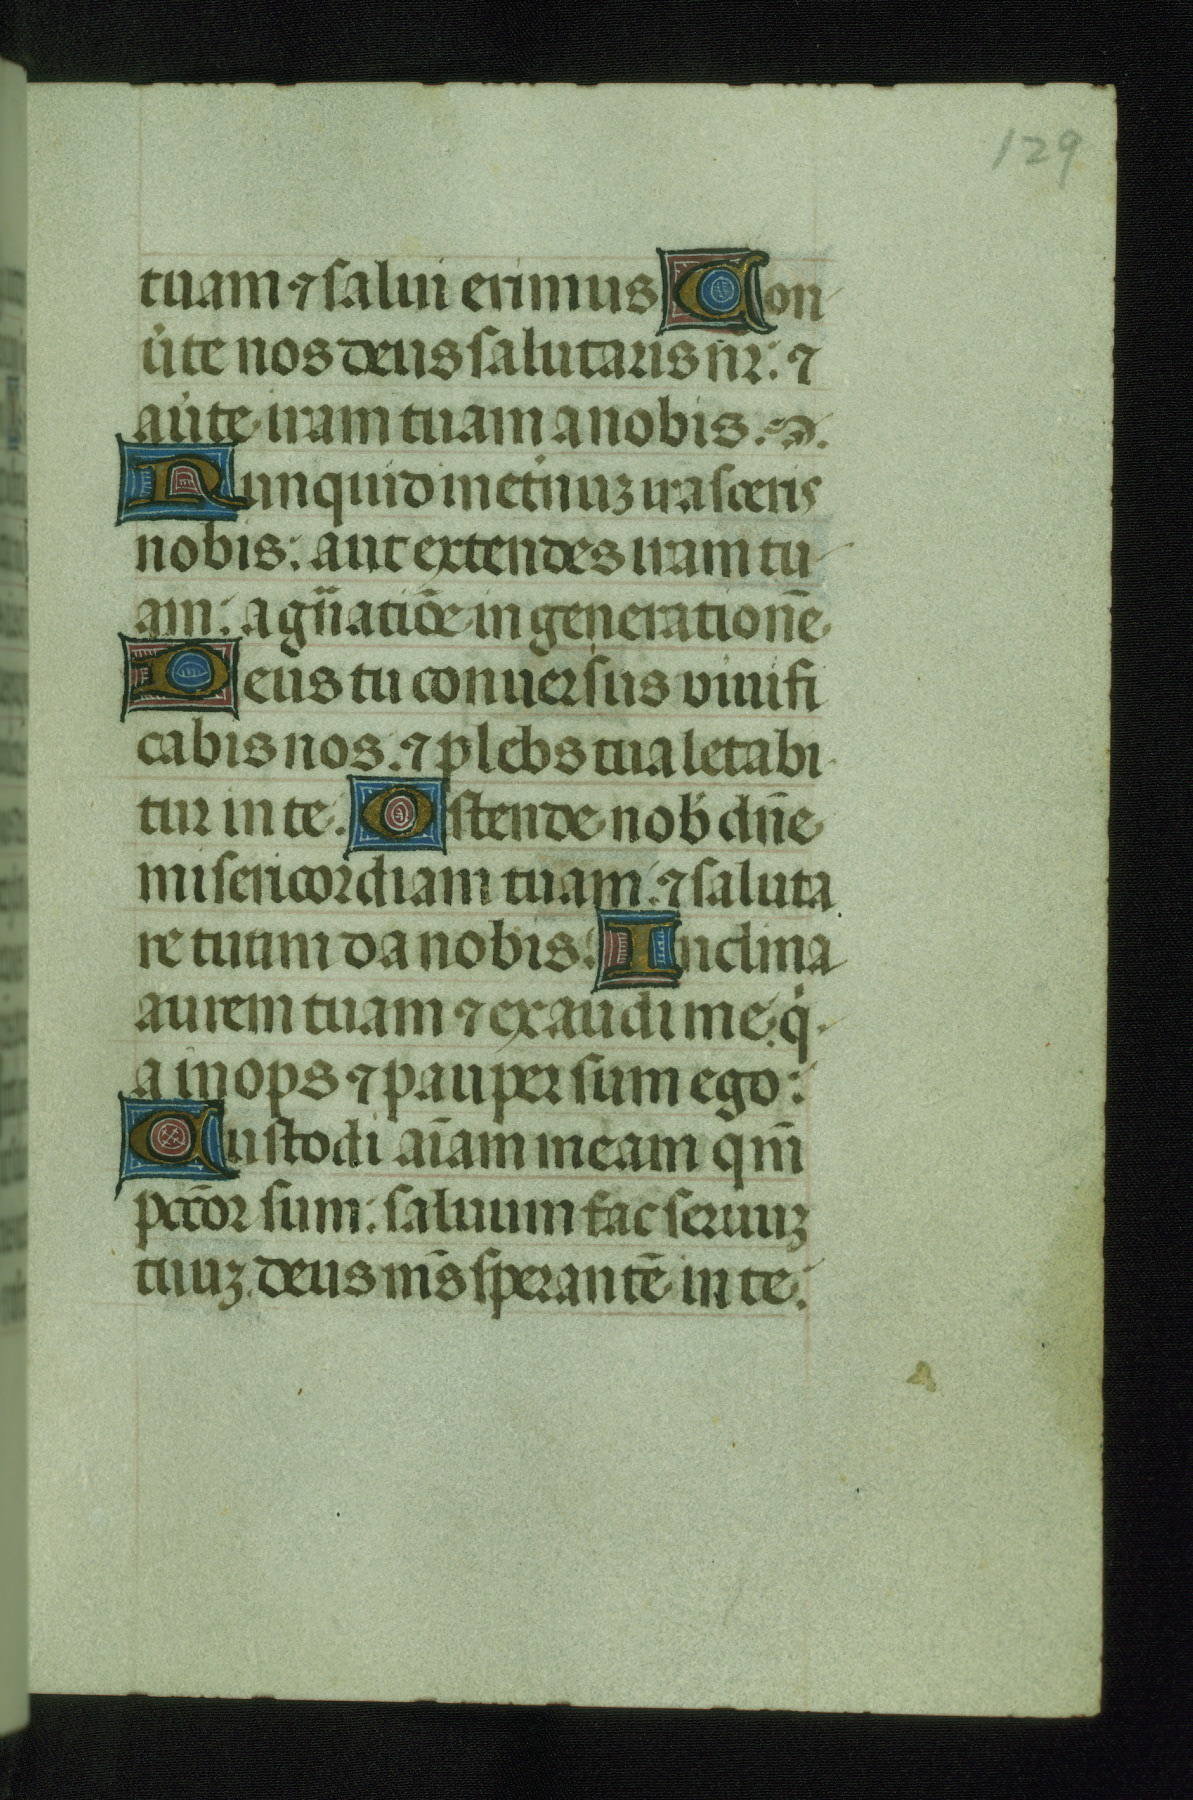 129
tuam ⁊ salui erimus Con
ủte nos deus salutaris nr̄: ⁊
aủte iram tuam a nobis.
Nunquid in etnuꝫ irasceris
nobis: aut extendes iram tu
am: a gn̄atiōe in generationē
Deus tu conuersus viuifi
cabis nos: ⁊ plebs tua letabi
tur in te. Ostende nob dn̄e
misericordiam tuam: ⁊ saluta
re tuum da nobis. Inclina
aurem tuam ⁊ exaudi me: q
a inops ⁊ pauper sum ego:
Custodi aīam meam qm̄
pctōr sum: saluum fac seruuꝫ
tuuꝫ deus ms̄ sperantē in te.